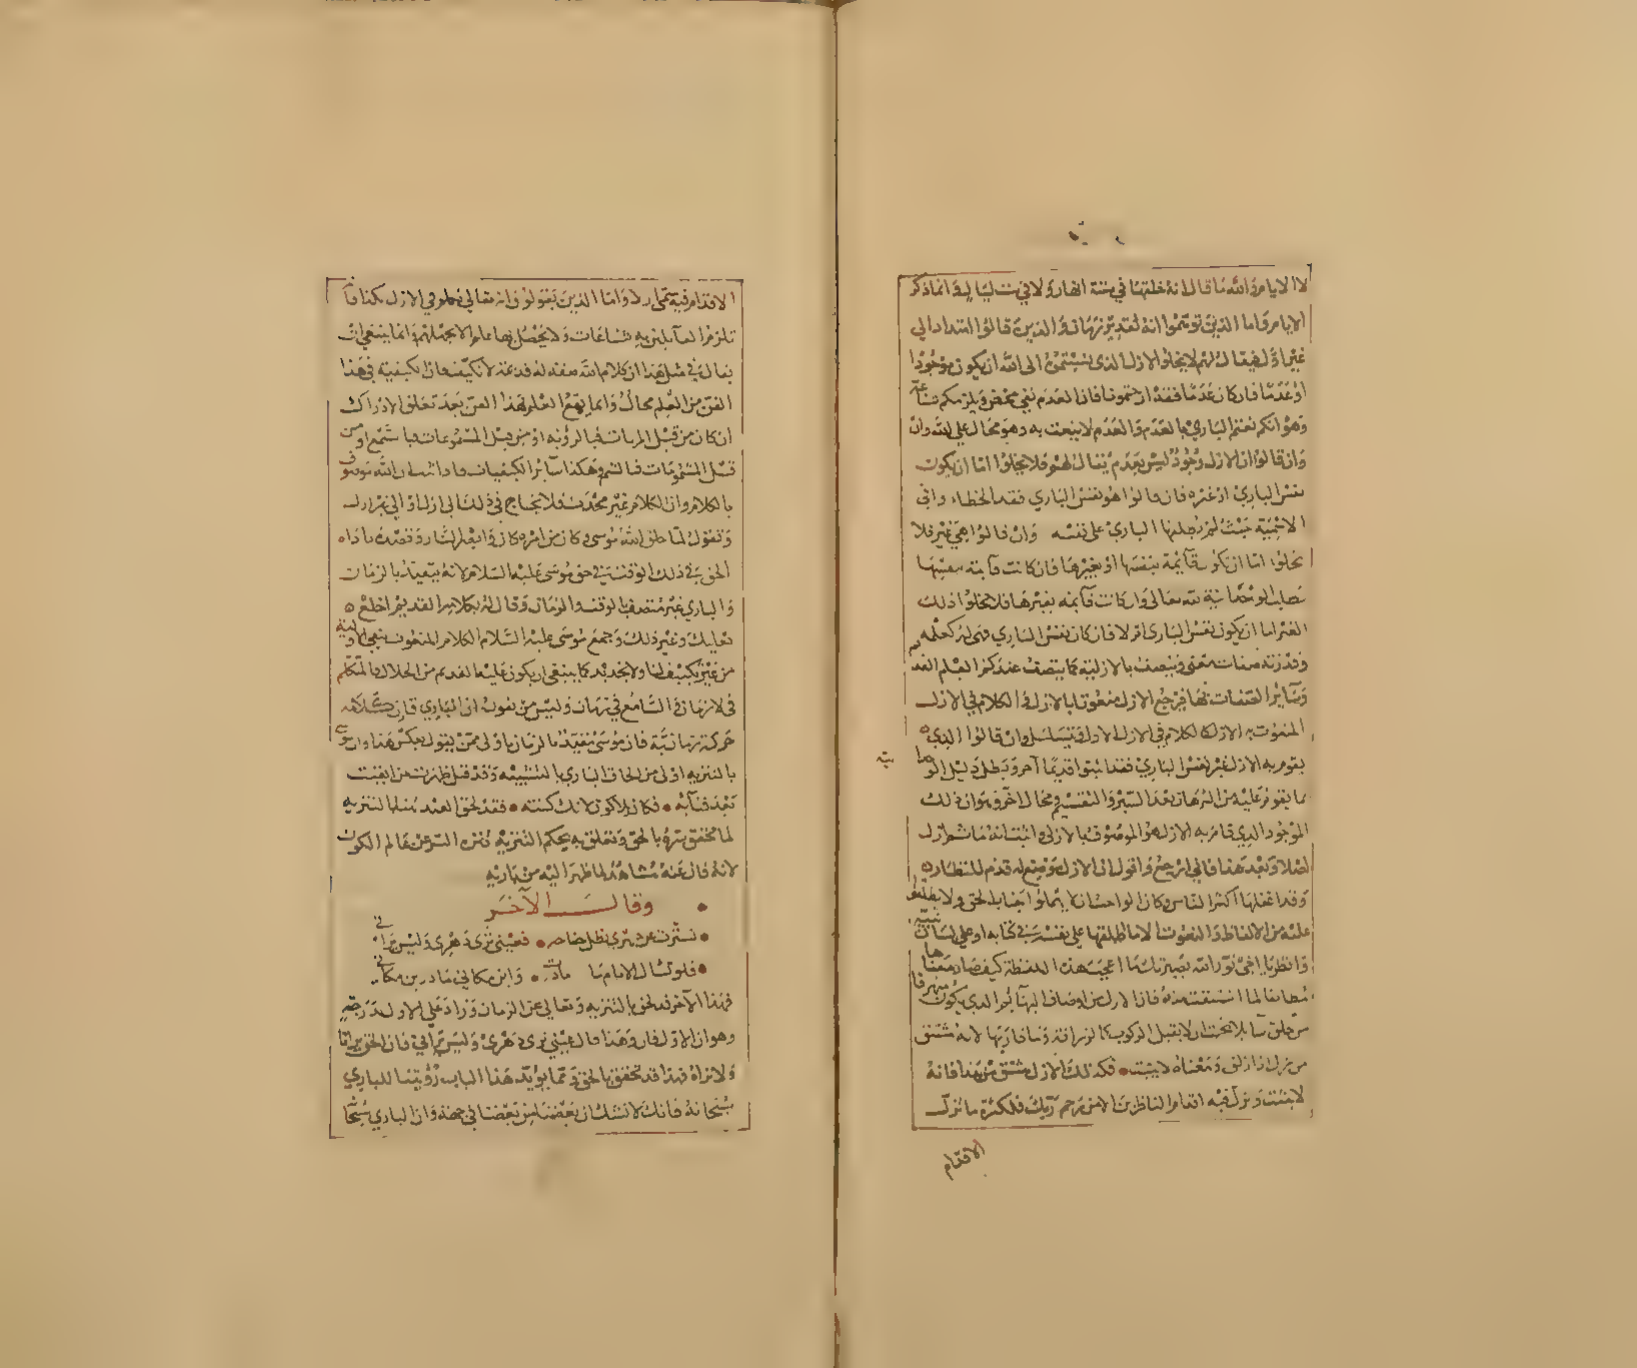 لا الايام والله ما قال انه خلقها في ستة انهار ولا في ست ليال وانما ذكر
الايام واما الذين توهموا انه تقدير زمان والذين قالوا امتداد الى
غير اول فيقال لهم لا يخلوا الازل الذي نسبتموه الى الله ان يكون موجودا
او عدما فان كان عدما فقد ارحتمونا فان العدم نفي محض ويلزمكم شناعة
وهو انكم نعتم الباري بالعدم والعدم لا ينعت به وهو محال على الله وان
وان قالوا ان الازل وجود ليس بعدم يقال لهم فلا يخلوا اما ان يكون
نفس الباري او غيره فان قالوا هو نفس الباري فقد اخطاء وا في
الاسمية حيث لم يطلقها الباري على نفسه وان قالوا هي غير فلا
يخلوا اما ان يكون قائمة بنفسها او بغيرها فان كانت قائمة بنفسها
بطلت الوحدانية لله تعالى وان كانت قائمة بغيرها فلا يخلوا ذلك
الغير اما ان يكون نفس الباري ام لا فان كان نفس الباري فهي له كعلمه
وقدرته صفات معنى ويتصف بالازلية كما يتصف عندكم العلم القديم
وسائر الصفات بها فرجع الازل منعوتا بالازل والكلام في الازل
المنعوت به الازل كالكلام في الازل الاول فيتسلسل وان قالوا الذي
يقوم به الازل غير نفس الباري فقد اثبتوا قديما آخر وبطل دليل الوحدانية
بما يقوم عليه من البرهان بعد السبر والتقسيم محال آخر وهو ان ذلك
الموجود الذي قام به الازل هو الموصوف بالازلي واثبتناه ما شم ازل
اصلا وبعد هذا فالى امر رجع واقول ان الازل موضع له قدم للنظار
وقد اغفلها اكثر الناس وكان الواحسان لا يتهاونوا جناب الحق ولا يطلقوا
عليه من الالفاظ والنعوت الا ما اطلقها على نفسه في كتابه او على لسان نبيه
وانظر يا اخي نور الله بصيرتك ما اعجب هذه اللفظة كيف صار معناها
مطابقا لما اشتقت منه فان الازل من اوصاف البهائم الذي يكون
لا يثبت فكذلك الازل مشتق من هذا فانه
لا يثبت ويزل فيه اقدام الناظرين الا من رحم ربك فلكثرة ما تزل
الاقدام
الاقدام فيه سمى ازلا واما الذين يقولون انه تعالى متكلم في الازل بكذا فما
يقال في مثل هذا ان كلام الله صفة له قديمة لا تكيف فان الكيفية في هذا
الفن من العلم محال وانما يقع العلم بهذا الفن بعد تعلق الادراك
ان كان من قبل المرئيات فبالرؤية او من قبل المسموعات فبالسمع او من
قبل المشمومات فبالشم وهكذا سائر الكيفيات فاذا ثبت ان الله موصوف
بالكلام وان الكلام غير محدث فلا نحتاج في ذلك الى ازل او الى غير ازل
ونقول لما خلق الله موسى وكان من امره كان وابصر النار وقصده ناداه
الحق في ذلك الوقت في حق موسى عليه السلام لانه يتقيد بالزمان
والباري غير متصف بالوقت والزمان وقال له بكلامه القديم اخلع
نعليك وغير ذلك وسمع موسى عليه السلام الكلام المنعوت بنفي الاولية
من غير تكييف لنا ولا تحديد كما ينبغي ان يكون عليه القديم من الجلال فالمتكلم
في لا زمان والسامع في زمان وليس من يقول ان الباري قارن كلامه
حركة زمانية فان موسى يقيد بالزمان باولى ممن يقول بعكس هذا وان موسى
بالتنزيه اولى من الحاق الباري بالتشبيه وقد قيل ظهرت لمن ابقيت
بعد فنائه • فكان بلا كون لانك كنته • فقد لحق العبد هنا بالتنزيه
لما تحقق سره بالحق وتعلق به بحكم التنزيه تنزه السر عن عالم الكون
لانه قال عنه مشاهدا لما ظهر اليه من باريه
• وقال الآخر
• تسترت عن دهري بظل جناحه • فعيني ترى دهري وليس يراني
• فلو تسال الايام ما مادرت • واين مكاني ما درين مكاني
فهذا الآخر قد لحق بالتنزيه وتعالى عن الزمان وزاد على الاول درجة
وهو ان الاول قار وهذا قال فعيني ترى دهري وليس يراني فان الحق يرانا
ولا نراه فهذا قد تحقق بالحق ومما يؤيد هذا الباب رؤيتنا للباري
سبحانه فانك لا تشك ان بعضنا من بعضنا في جهة وان الباري سبحا